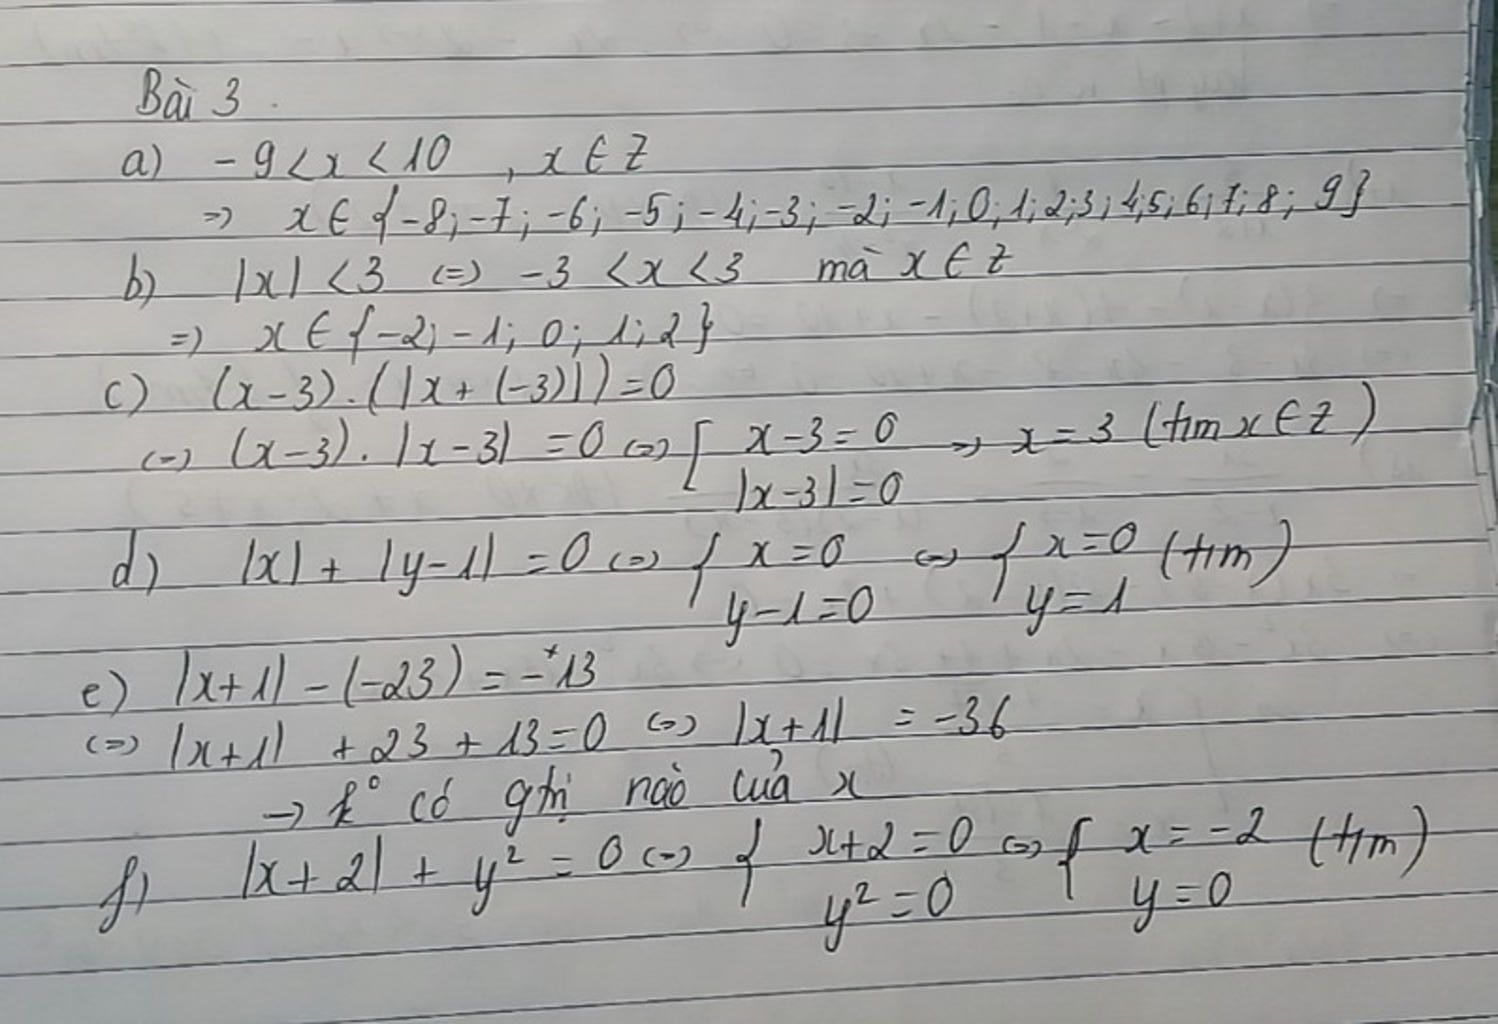 Bài 3.
a) -9 < x < 10 , x ∈ Z
=> x ∈ {-8; -7; -6; -5; -4; -3; -2; -1; 0; 1; 2; 3; 4; 5; 6; 7; 8; 9}
b) |x| < 3 <=> -3 < x < 3 mà x ∈ Z
=> x ∈ {-2; -1; 0; 1; 2}
c) (x-3).(|x+(-3)|) = 0
<=> (x-3).|x-3| = 0 <=> [ x-3=0 => x = 3 (tm x ∈ Z)
|x-3| = 0
d) |x| + |y-1| = 0 <=> { x = 0 <=> { x = 0 (tm)
y-1=0 y = 1
e) |x+1| - (-23) = -13
<=> |x+1| + 23 + 13 = 0 <=> |x+1| = -36
-> k° có gtrị nào của x
f) |x+2| + y² = 0 <=> { x+2 = 0 <=> { x = -2 (tm)
y² = 0 y = 0